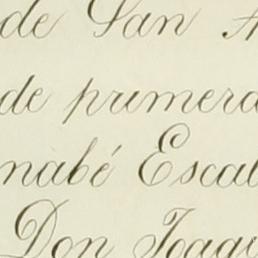 de San
de primera
nabé Escal
Don Joaqu